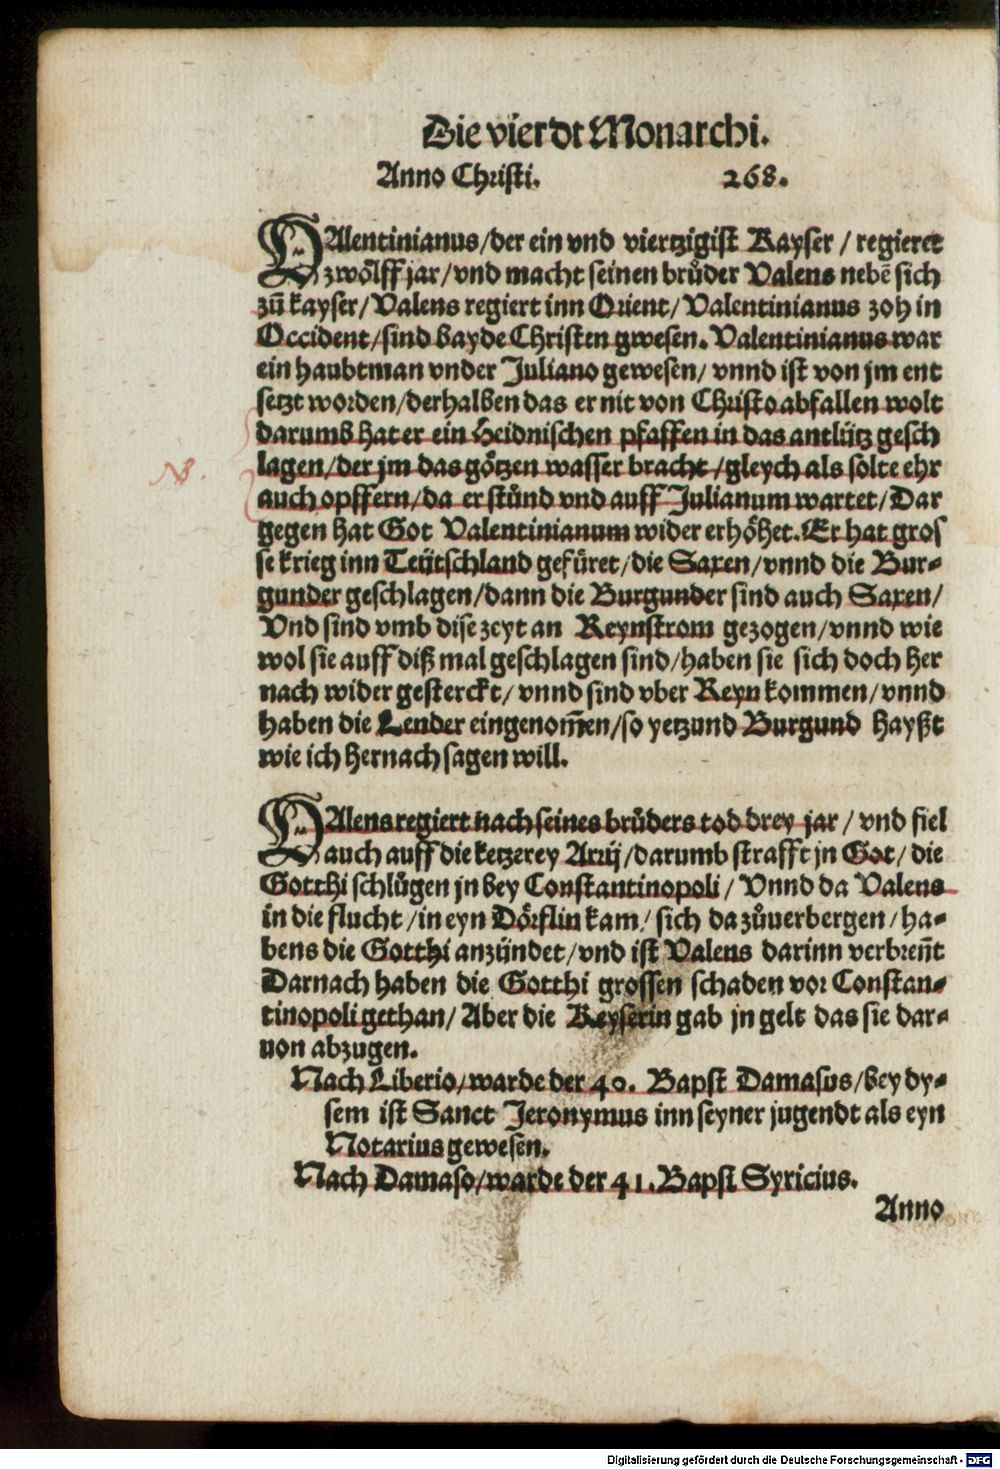 Die vierdt Monarchi.
Anno Christi. 268.
VAlentinianus/der ein vnd viertzigist Kayser / regieret
zwölff jar/vnd macht seinen brůder Valens nebē sich
zū kayser/Valens regiert inn Orient/Valentinianus zoh in
Occident/sind bayde Christen gwesen. Valentinianus war
ein haubtman vnder Juliano gewesen/ vnnd ist von jm ent
setzt worden/derhalben das er nit von Christo abfallen wolt
darumb hat er ein Heidnischen pfaffen in das antlütz gesch
lagen/der jm das götzen wasser bracht/gleych als solte ehr
auch opffern/da er stůnd vnd auff Julianum wartet/Dar
gegen hat Got Valentinianum wider erhöhet. Er hat gros
se krieg inn Teütschland gefüret/die Saxen/vnnd die Bur-
gunder geschlagen/dann die Burgunder sind auch Saxen/
Vnd sind vmb dise zeyt an Reynstrom gezogen/vnnd wie
wol sie auff diß mal geschlagen sind/haben sie sich doch her
nach wider gesterckt/ vnnd sind vber Reyn kommen/vnnd
haben die Lender eingenom̄en/so yetzund Burgund hayßt
wie ich hernach sagen will.
NB.
VAlens regiert nach seines brůders tod drey jar / vnd fiel
auch auff die ketzerey Arrij/darumb strafft jn Got/ die
Gotthi schlůgen jn bey Constantinopoli/ Vnnd da Valens
in die flucht/in eyn Dörflin kam/ sich da zůuerbergen/ha-
bens die Gotthi anzündet/vnd ist Valens darinn verbreñt
Darnach haben die Gotthi grossen schaden vor Constan-
tinopoli gethan/ Aber die Keyserin gab jn gelt das sie dar-
uon abzugen.
Nach Liberio/warde der 40. Bapst Damasus/bey dy-
sem ist Sanct Jeronymus inn seyner jugendt als eyn
Notarius gewesen.
Nach Damaso/warde der 41. Bapst Syricius.
Anno
Digitalisierung gefördert durch die Deutsche Forschungsgemeinschaft - DFG